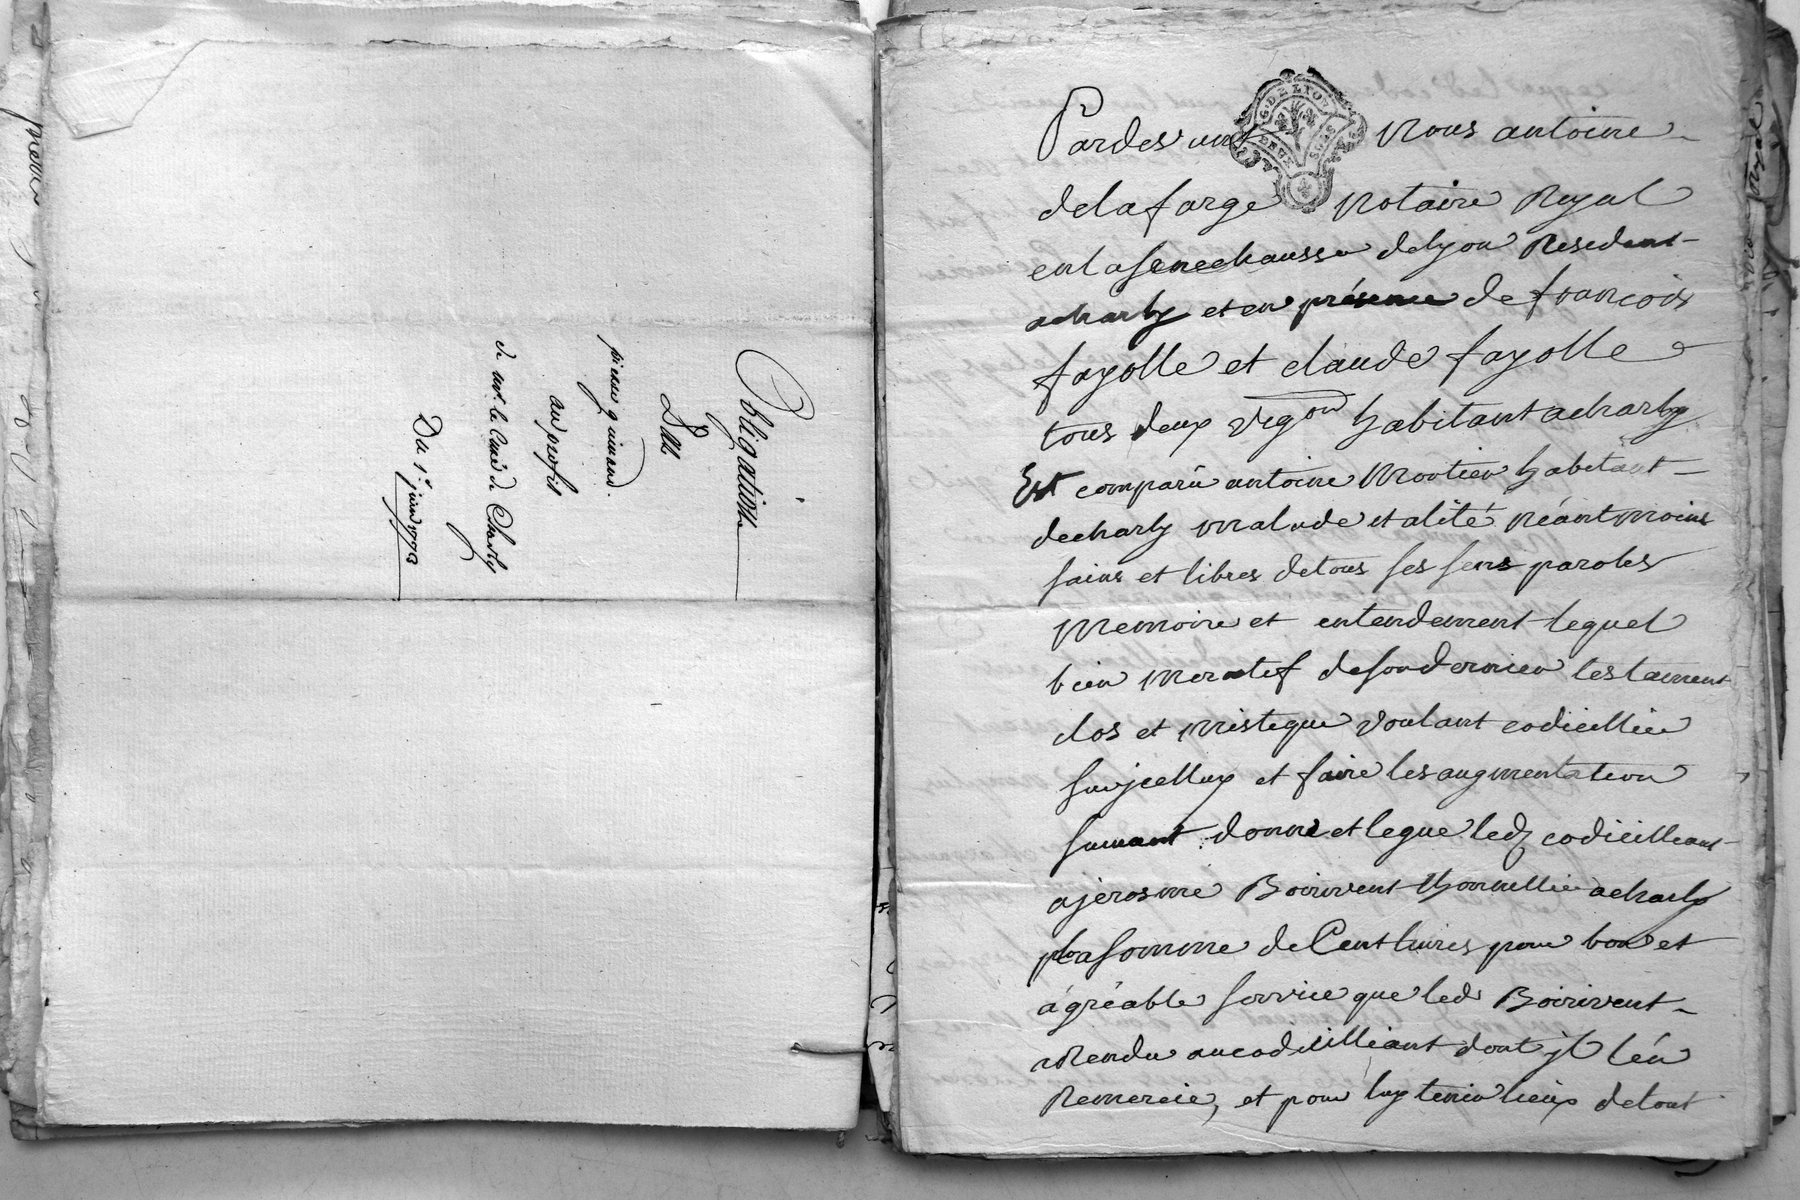 Obligation
De 200 ll
pierre guinand.
au profit
de mr. le Curé de Charly
Du 1er. juin 1773
G. DE LYON
DEUX SOLS
Pardevant Nous antoine
delafarge Notaire Royal
en la senechaussee de lyon Residant
a charly et en présence de francois
fayolle et claude fayolle
tous deux vigon habitant a charly
Est comparu antoine habitant
de charly malade et alité néantmoins
sains et libres de tous ses sens paroles
memoire et entendement lequel
bien memoratif de son dernier testament
clos et mistique voulant codicillier
sur jcelluy et faire les augmentation
suivant donne et legue led codicilliant
a jerosme Boirivent thonnellier a charly
la somme de Cent livres pour bon et
agréable service que led Boirivent
a Rendu au codicilliant dont jl l'en
Remercie, et pour luy tenir lieux de tout